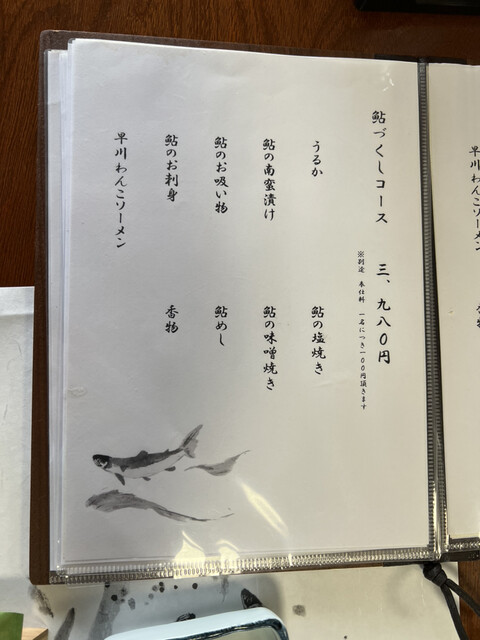 鮎づくしコース　三、九八〇円
※別途　奉仕料　一名につき一〇〇円頂きます
うるか
鮎の塩焼き
鮎の南蛮漬け
鮎の味噌焼き
鮎のお吸い物
鮎めし
鮎のお刺身
香物
早川わんこソーメン